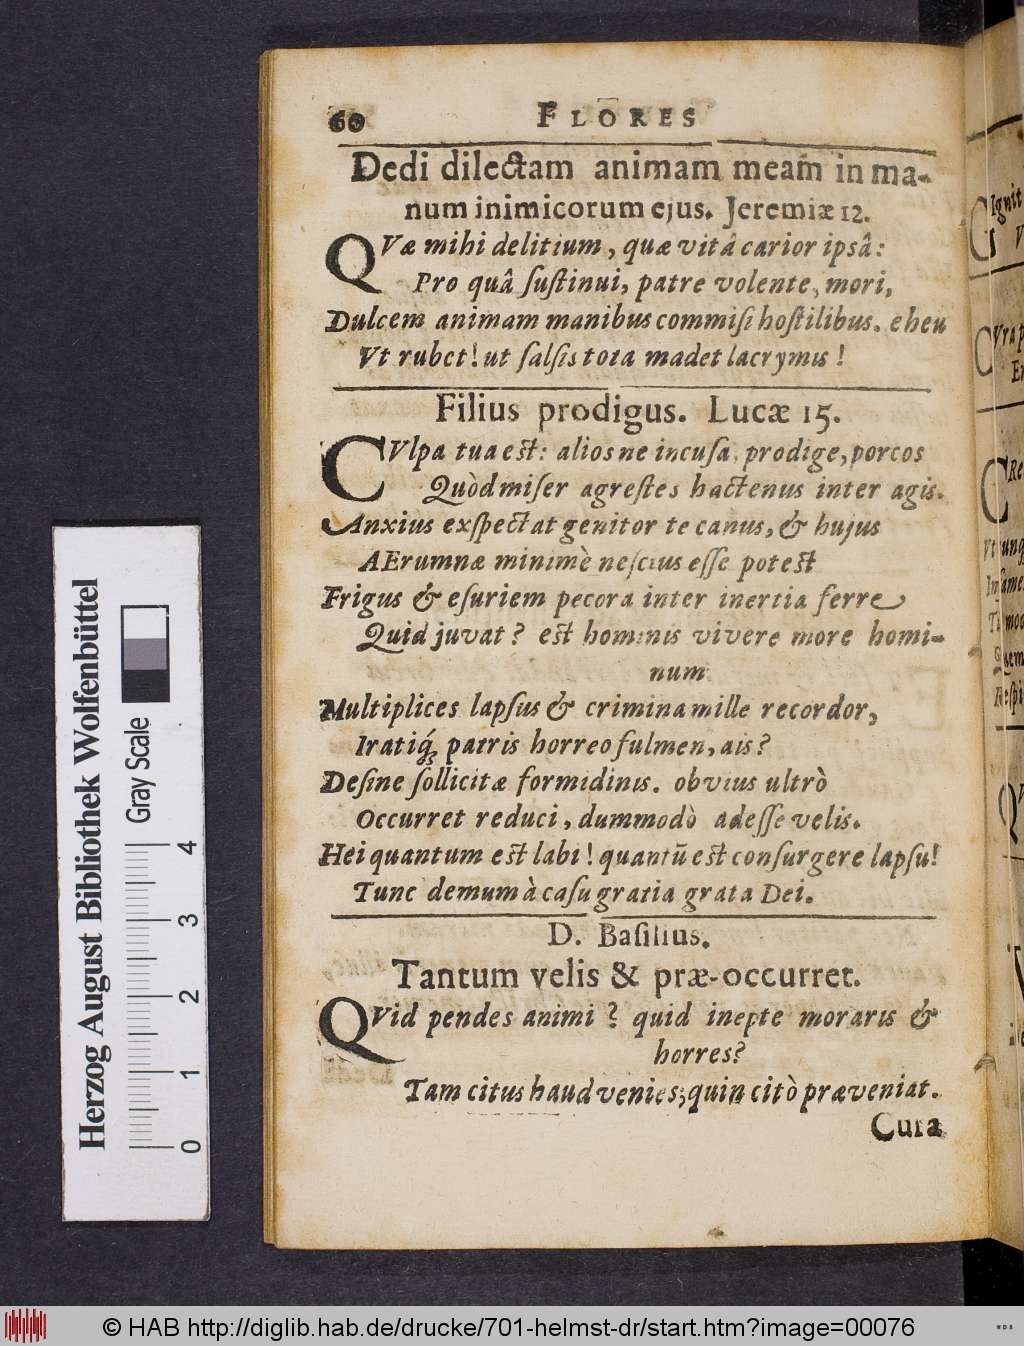 60 FLORES
Dedi dilectam animam meam in ma-
num inimicorum ejus. Jeremiæ 12.
QVæ mihi delitium, quæ vitâ carior ipsâ:
Pro quâ ſuſtinui, patre volente, mori,
Dulcem animam manibus commiſi hoſtilibus. eheu
Vt rubet! ut ſalſis tota madet lacrymis!
Filius prodigus. Lucæ 15.
CVlpa tua est: alios ne incuſa, prodige, porcos
Quòd miſer agreſtes hactenus inter agis.
Anxius exſpectat genitor te canus, & hujus
AErumnæ minimè neſcius eſſe potest
Frigus & eſuriem pecora inter inertia ferre
Quid juvat? est hominis vivere more homi-
num
Multiplices lapſus & crimina mille recordor,
Iratiq́ꝫ patris horreo fulmen, ais?
Deſine ſollicitæ formidinis. obvius ultrò
Occurret reduci, dummodò adeſſe velis.
Hei quantum est labi! quantũ est conſurgere lapſu!
Tunc demum à caſu gratia grata Dei.
D. Baſilius.
Tantum velis & præ-occurret.
QVid pendes animi? quid inepte moraris &
horres?
Tam citus haud venies; quin citò præveniat.
Cura
Herzog August Bibliothek Wolfenbüttel
Gray Scale
0 1 2 3 4
© HAB http://diglib.hab.de/drucke/701-helmst-dr/start.htm?image=00076